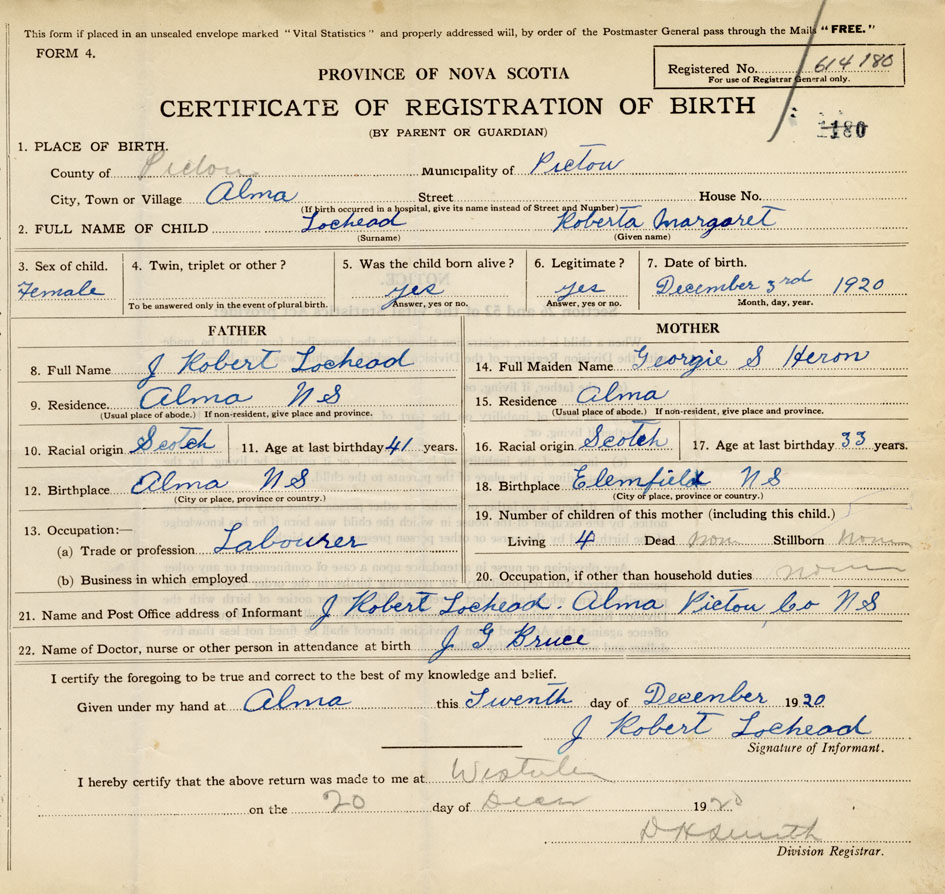 This form if placed in an unsealed envelope marked "Vital Statistics" and properly addressed will, by order of the Postmaster General pass through the Mails "FREE."
FORM 4.
PROVINCE OF NOVA SCOTIA
Registered No. 614180
For use of Registrar General only.
CERTIFICATE OF REGISTRATION OF BIRTH
180
(BY PARENT OR GUARDIAN)
1. PLACE OF BIRTH.
County of Pictou Municipality of Pictou
City, Town or Village Alma Street House No.
(If birth occurred in a hospital, give its name instead of Street and Number)
2. FULL NAME OF CHILD Lochead Roberta Margaret
(Surname) (Given name)
3. Sex of child. 4. Twin, triplet or other? 5. Was the child born alive? 6. Legitimate? 7. Date of birth.
Female yes yes December 3rd 1920
To be answered only in the event of plural birth. Answer, yes or no. Answer, yes or no. Month, day, year.
FATHER MOTHER
8. Full Name J Robert Lochead 14. Full Maiden Name Georgie S Heron
9. Residence Alma N S 15. Residence Alma
(Usual place of abode.) If non-resident, give place and province. (Usual place of abode.) If non-resident, give place and province.
10. Racial origin Scotch 11. Age at last birthday 41 years. 16. Racial origin Scotch 17. Age at last birthday 33 years.
12. Birthplace Alma N S 18. Birthplace Elemfield N S
(City or place, province or country.) (City or place, province or country.)
13. Occupation:— 19. Number of children of this mother (including this child.)
(a) Trade or profession Labourer Living 4 Dead Stillborn
(b) Business in which employed 20. Occupation, if other than household duties
21. Name and Post Office address of Informant J Robert Lochead. Alma Pictou Co N S
22. Name of Doctor, nurse or other person in attendance at birth J G Bruce
I certify the foregoing to be true and correct to the best of my knowledge and belief.
Given under my hand at Alma this Twenth day of December 1920
J Robert Lochead
Signature of Informant.
I hereby certify that the above return was made to me at
on the 20 day of 1920
D H Smith
Division Registrar.